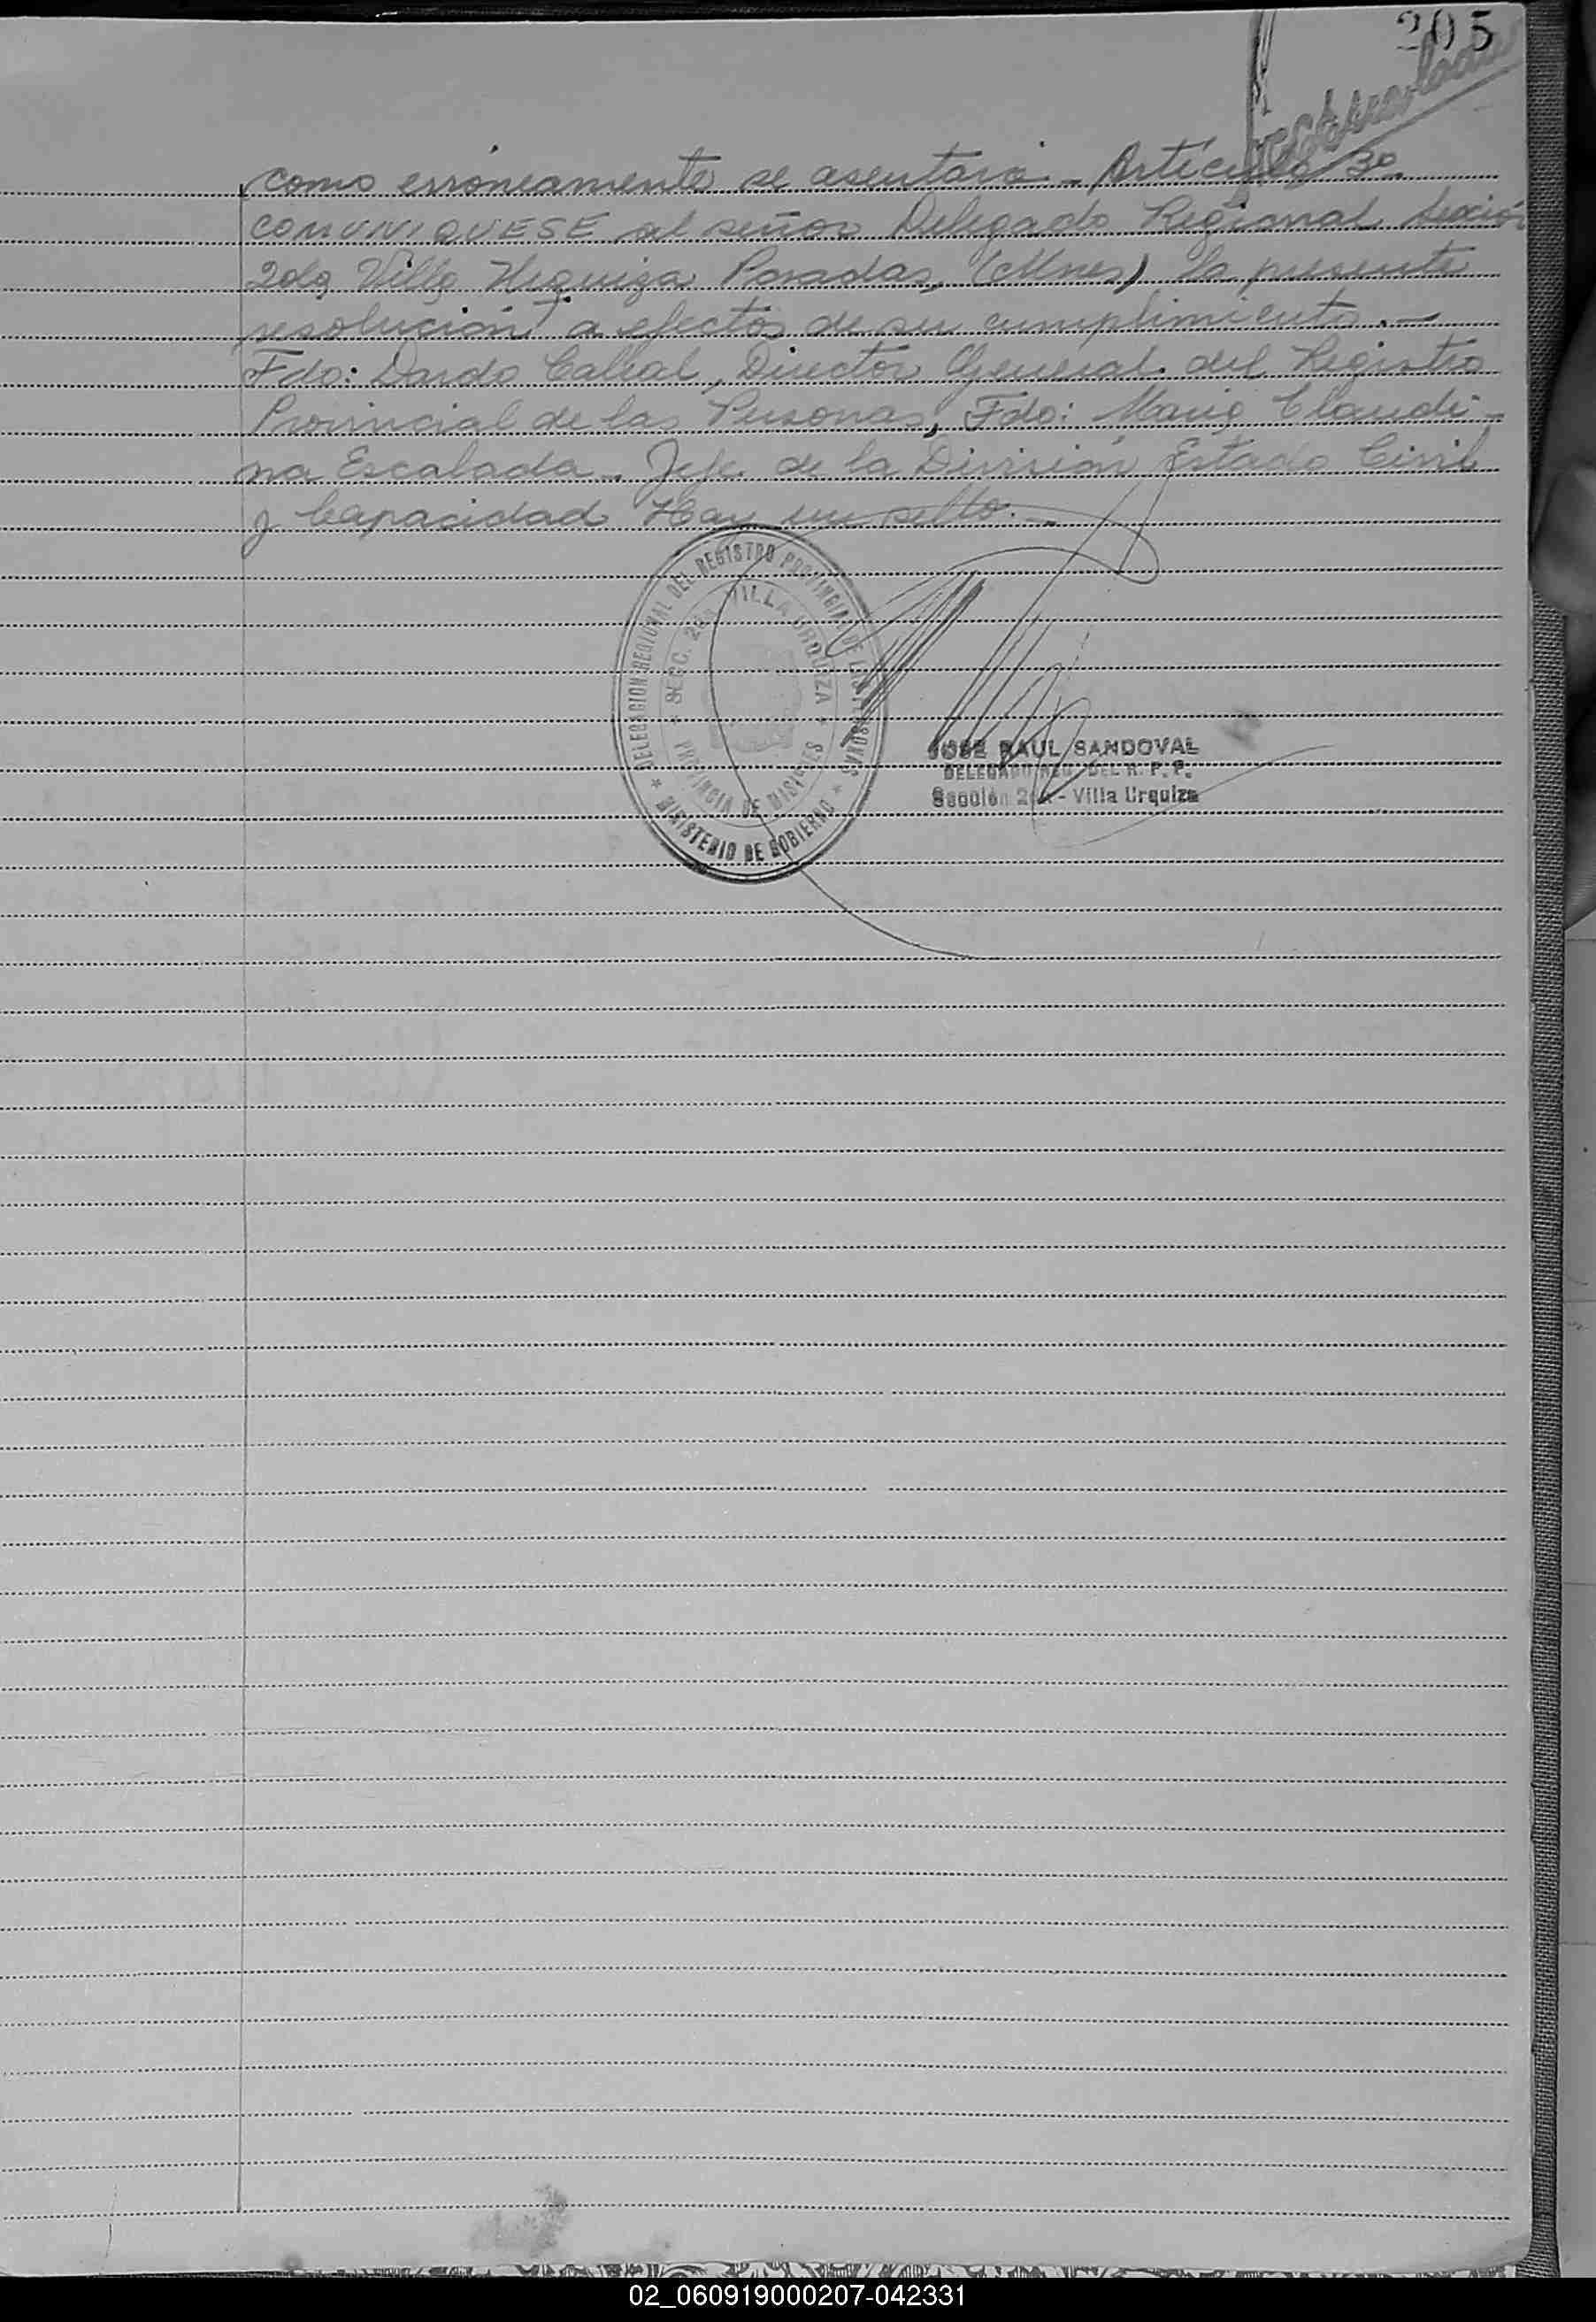 205
como erróneamente se asentara - Artículo 3º
COMUNIQUESE al señor Delegado Regional Sección
2da Villa Urquiza Posadas, (Mnes) la presente
resolución a efectos de su cumplimiento.-
Fdo: Dardo Cabral, Director General del Registro
Provincial de las Personas, Fdo: Maria Claudi-
na Escalada - Jefe de la División Estado Civil
y Capacidad Hay un sello.-
DELEGACION REGIONAL DEL REGISTRO PROVINCIAL DE LAS PERSONAS
SECC. 2da VILLA URQUIZA
PROVINCIA DE MISIONES
MINISTERIO DE GOBIERNO
JOSE RAUL SANDOVAL
DELEGADO REG. DEL R. P. P.
Sección 2da - Villa Urquiza
02_060919000207-042331